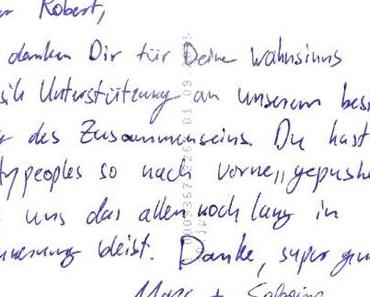 Robert,
danken Dir für Deine Wahnsinns
sik Unterstützung an unserem bes
r des Zusammenseins. Du hast
typeoples so nach vorne „gepushe
uns das allen noch lang in
nnerung bleibt. Danke, super
Marc + Sabrina